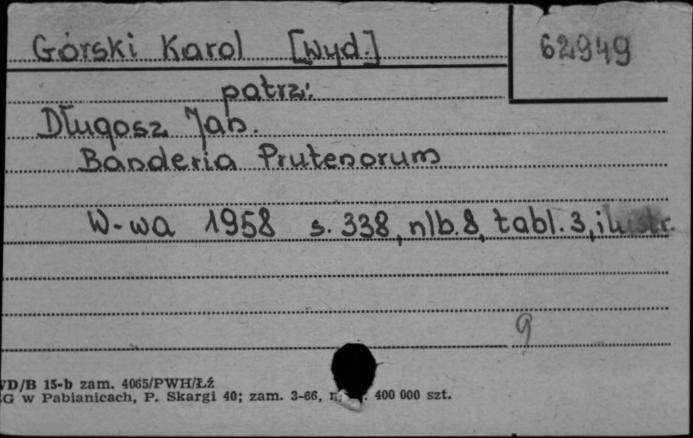 Górski Karol [Wyd.] 62949
patrz:
Długosz Jan.
Banderia Prutenorum
W-wa 1958 s. 338, nlb. 8, tabl. 3, ilustr.
9
WD/B 15-b zam. 4065/PWH/Łź
ŁG w Pabianicach, P. Skargi 40; zam. 3-66, 400 000 szt.